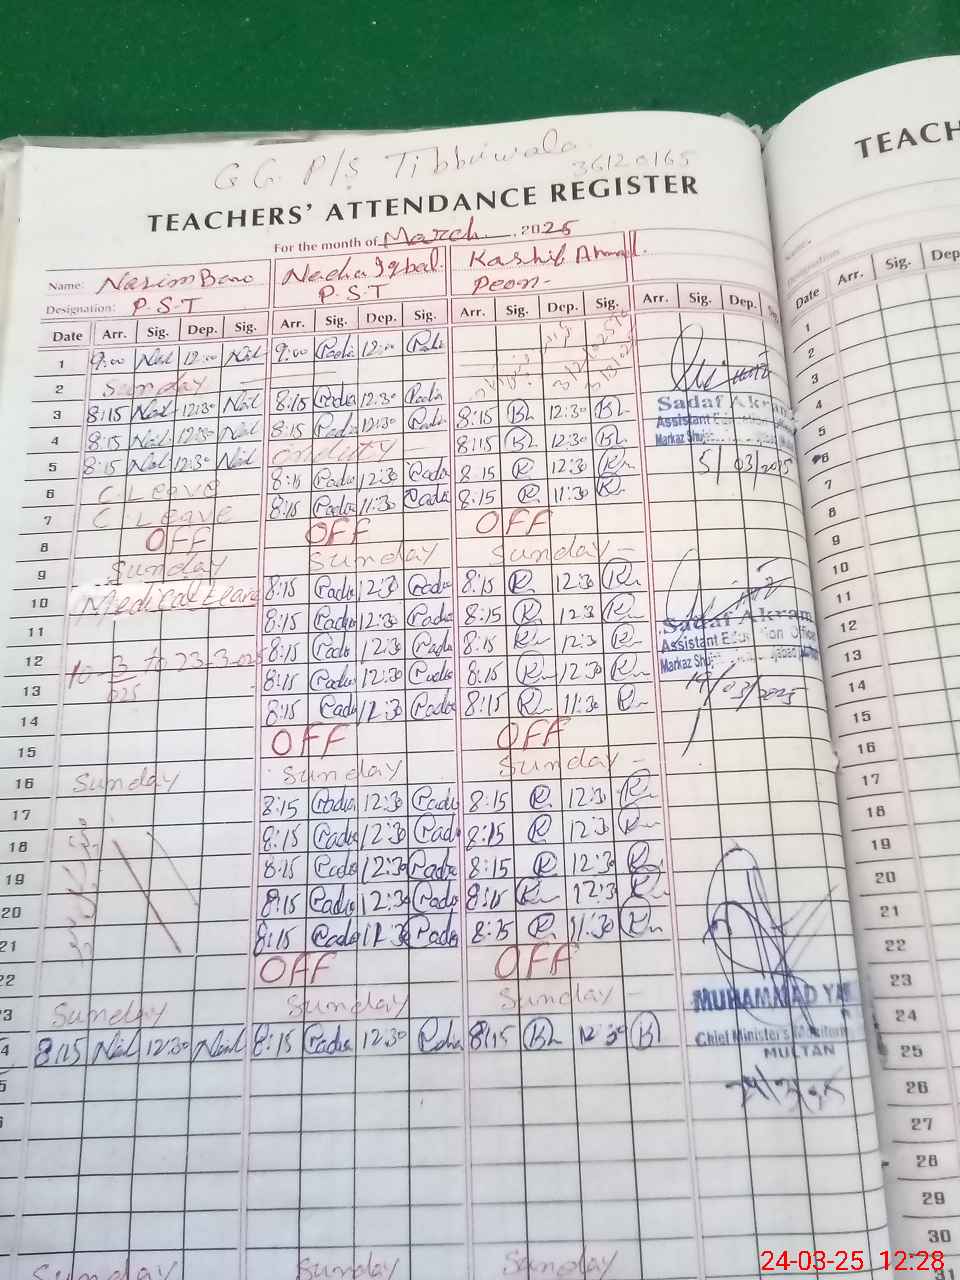 G.G. P/S Tibbiwala
36120165
TEACHERS' ATTENDANCE REGISTER
TEACH
For the month of March 2025
Name: Nasim Bano Nadia Iqbal Kashif Ahmad
Designation: P.S.T P.S.T Peon
Date Arr. Sig. Dep. Sig. Arr. Sig. Dep. Sig. Arr. Sig. Dep. Sig. Arr. Sig. Dep.
Date Arr. Sig. Dep
1 9:00 12:00 9:00 Nadia 12:00 Nadia
2 Sunday
3 8:15 12:30 8:15 Nadia 12:30 Nadia 8:15 12:30
4 8:15 12:30 8:15 Nadia 12:30 Nadia 8:15 12:30
5 8:15 12:30 on duty 8:15 12:30
6 C.Leave 8:15 Nadia 12:30 Nadia 8:15 12:30
7 C.Leave 8:15 Nadia 11:30 Nadia 8:15 11:30
8 OFF OFF OFF
9 Sunday Sunday Sunday
10 Medical Leave 8:15 Nadia 12:30 Nadia 8:15 12:30
11 8:15 Nadia 12:30 Nadia 8:15 12:30
12 10-3-025 to 23-3-025 8:15 Nadia 12:30 Nadia 8:15 12:30
13 8:15 Nadia 12:30 Nadia 8:15 12:30
14 8:15 Nadia 11:30 Nadia 8:15 11:30
15 OFF OFF
16 Sunday Sunday Sunday
17 8:15 Nadia 12:30 Nadia 8:15 12:30
18 8:15 Nadia 12:30 Nadia 8:15 12:30
19 8:15 Nadia 12:30 Nadia 8:15 12:30
20 8:15 Nadia 12:30 Nadia 8:15 12:30
21 8:15 Nadia 11:30 Nadia 8:15 11:30
22 OFF OFF
23 Sunday Sunday Sunday
24 8:15 12:30 8:15 Nadia 12:30 Nadia 8:15 12:30
Sunday Sunday Sunday
Sadaf Akram
Assistant Education
Markaz Shuj
5/03/2025
Sadaf Akram
Assistant Education Officer
Markaz Shuj
14/03/2025
MUHAMMAD YA
Chief Minister's Monitor
MULTAN
24/3/25
1
2
3
4
5
6
7
8
9
10
11
12
13
14
15
16
17
18
19
20
21
22
23
24
25
26
27
28
29
30
31
24-03-25 12:28